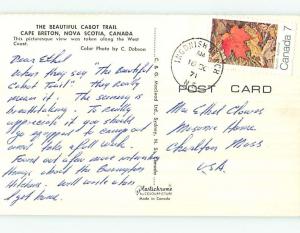 THE BEAUTIFUL CABOT TRAIL
CAPE BRETON, NOVA SCOTIA, CANADA
This picturesque view was taken along the West
Coast.
Color Photo by C. Dobson
Dear Ethel
When they say "The Beautiful
Cabot Trail" They really
mean it. The scenery is
breathtaking. To really
appreciate it you should
go
and take a full week.
Found out after more interesting
things about the
Will write when
I get home.
Plastichrome
by COLOURPICTURE
Made in Canada
INGONISH BEACH
AM
71
N.S.
Canada 7
POST CARD
Mrs Ethel
Masonic Home
Charlton Mass
U.S.A.